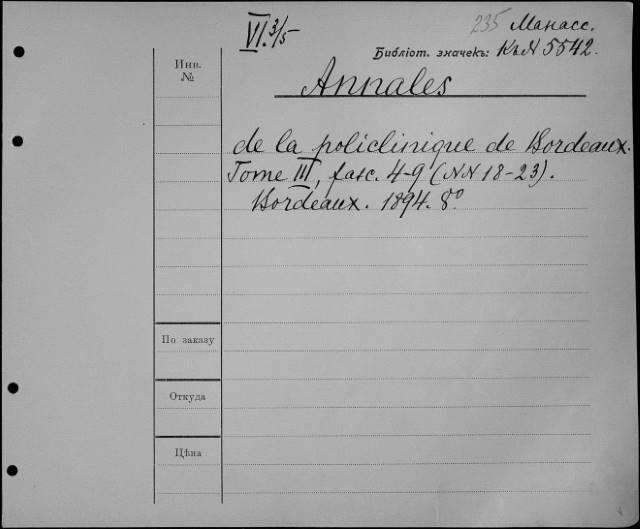 VI.3/5
235 Манасс.
Библіот. значекъ: КъN 5542.
Инв. №
Annales
de la policlinique de Bordeaux.
Tome III, fasc. 4-9 (NN 18-23).
Bordeaux. 1894. 8°
По заказу
Откуда
Цѣна